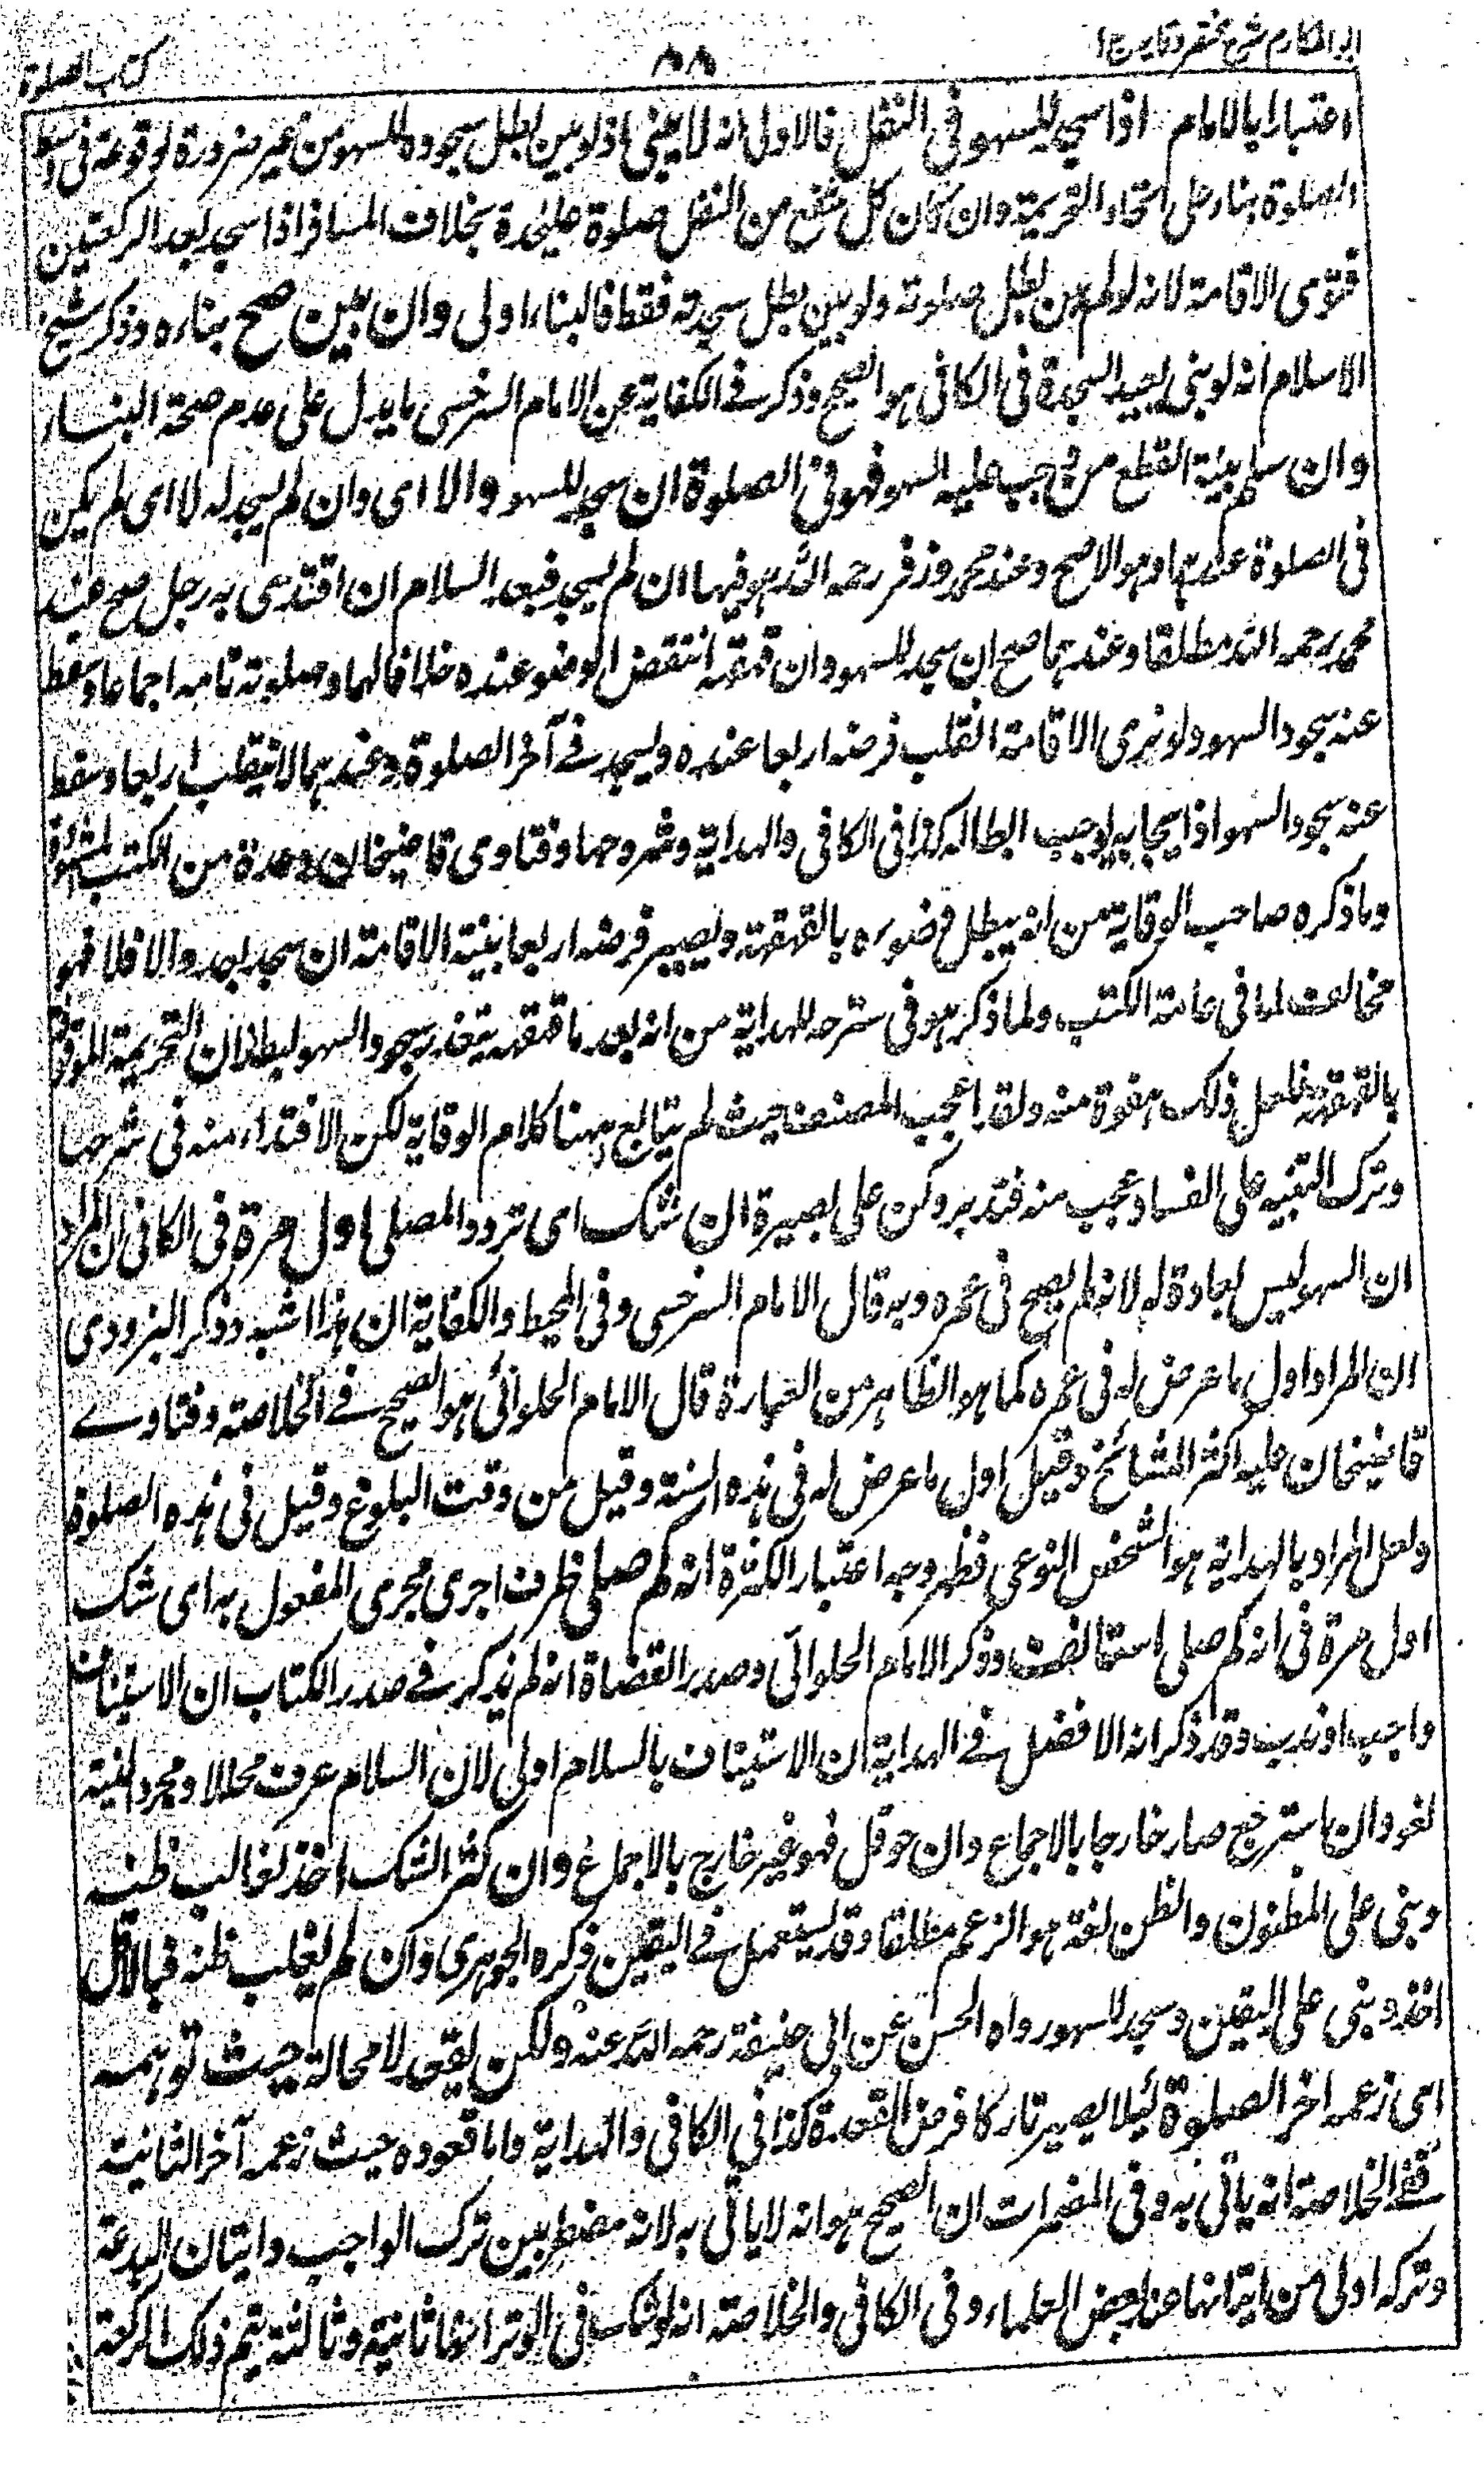 ابو المكارم شرح مختصر وقاية ج ١
٨٨
كتاب الصلوة
اعتبارا بالامام اذا سجد للسهو فى النفل فالاولى انه لا يبنى اذ لو بنى لبطل سجوده للسهو من غير ضرورة لوقوعه فى وسط
الصلوة بناء على اتحاد التحريمة وان كان كل شفع من النفل صلوة عليحدة بخلاف المسافر اذا سجد بعد الركعتين
فنوى الاقامة لانه لو لم يبن بطل صلوته ولو بنى بطل سجدته فقط فالبناء اولى وان بنى صح بناءه وذكر شيخ
الاسلام انه لو بنى يعيد السجدة فى الكافى هو الصحيح وذكر فى الكفاية عن الامام السرخسى ما يدل على عدم صحة البناء
وان سلم بنية القطع من وجب عليه السهو فهو فى الصلوة ان سجد للسهو والا اى وان لم يسجد له لا اى لم يكن
فى الصلوة عندهما وهو الاصح وعند محمد وزفر رحمه الله هو فيها ان لم يسجد فبعد السلام ان اقتدى به رجل صح عند
محمد رحمه الله مطلقا وعندهما صح ان سجد للسهو وان قهقه انتقض الوضوء عنده خلافا لهما وصلوته تامة اجماعا وسقط
عنه سجود السهو ولو نوى الاقامة انقلب فرضه اربعا عنده ويسجد فى آخر الصلوة وعندهما لا ينقلب اربعا وسقط
عنه سجود السهو اذ ايجابه يوجب ابطاله كذا فى الكافى والهداية وشروحها وفتاوى قاضيخان وعدة من الكتب المشهورة
وما ذكره صاحب الوقاية من انه يبطل وضوءه بالقهقهة ويصير فرضه اربعا بنية الاقامة ان سجد بعد والا فلا فهو
مخالف لما فى عامة الكتب ولما ذكر هو فى شرحه للهداية من انه بعد ما قهقه يتعذر سجود السهو لبطلان التحريمة للوقوع
بالقهقهة فلعل ذلك هفوة منه ولقد اعجب المصنف حيث لم يتابع ههنا كلام الوقاية لكن الاقتداء منه فى شرحها
وترك التنبيه على الفساد عجب منه فتدبر وكن على بصيرة ان شك اى تردد المصلى اول مرة فى الكافى ان المراد
ان السهو ليس بعادة له لا انه لم يصح فى عمره وبه قال الامام السرخسى وفى المحيط والكفاية ان هذا اشبه وذكر البزدوى
ان المراد اول ما عرض له فى عمره كما هو الظاهر من العبارة قال الامام الحلوائى هو الصحيح فى الخلاصة وفتاوى
قاضيخان عليه اكثر المشائخ وقيل اول ما عرض له فى هذه السنة وقيل من وقت البلوغ وقيل فى هذه الصلوة
ولعل المراد بالهداية هو الشخص النوعى فظهر وجه اعتبار الكثرة انه كم صلى ظرف اجرى مجرى المفعول به اى شك
اول مرة فى انه كم صلى استانف وذكر الامام الحلوائى وصدر القضاة انه لم يذكر فى صدر الكتاب ان الاستيناف
واجب او ندب وقد ذكر انه الافضل فى الهداية ان الاستيناف بالسلام اولى لان السلام عرف محللا ومجرد النية
لغو وان استرجع صار خارجا بالاجماع وان حوقل فهو غير خارج بالاجماع وان كثر الشك اخذ بغالب ظنه
وبنى على المظنون والظن لغة هو الزعم مطلقا وقد يستعمل فى اليقين ذكره الجوهرى وان لم يغلب ظنه فبالاقل
اخذ وبنى على اليقين وسجد للسهو رواه الحسن عن ابى حنيفة رحمه الله عنه ولكن يقعد لا محالة حيث توهمه
اى زعمه اخر الصلوة لئلا يصير تاركا فرض القعدة كذا فى الكافى والهداية واما قعوده حيث زعمه آخر الثانية
ففى الخلاصة انه ياتى به وفى المضمرات ان الصحيح هو انه لا ياتى به لانه مضطر بين ترك الواجب واتيان البدعة
وتركه اولى من اتيانها عند بعض العلماء وفى الكافى والخلاصة انه لو شك فى الوتر انها ثانية وثالثة يتم ذلك الركعة